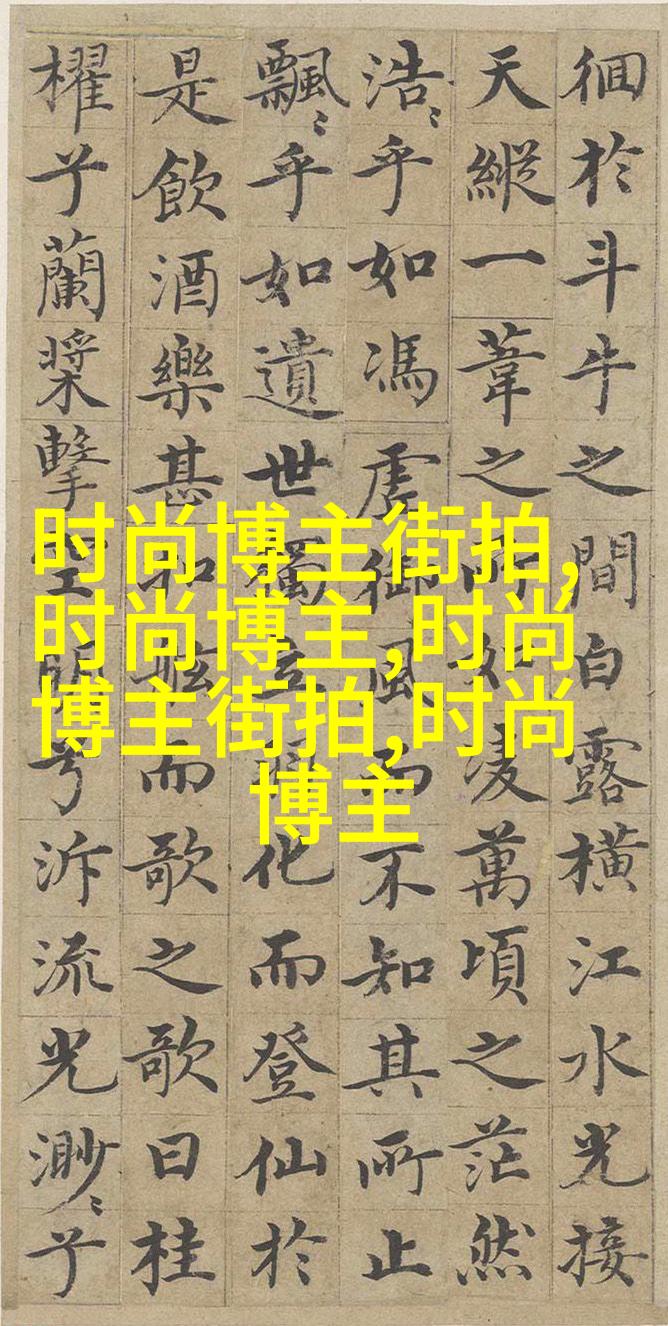 徊於斗牛之間白露橫江水光接
天縱一葦之所如凌萬頃之茫然
浩〻乎如馮虛御風而不知其所止
飄〻乎如遺世獨立化而登仙於
是飲酒樂甚扣舷而歌之歌曰桂
櫂兮蘭槳擊空明兮泝流光渺〻兮
时尚博主街拍,
时尚博主,时尚
博主街拍,时尚
博主